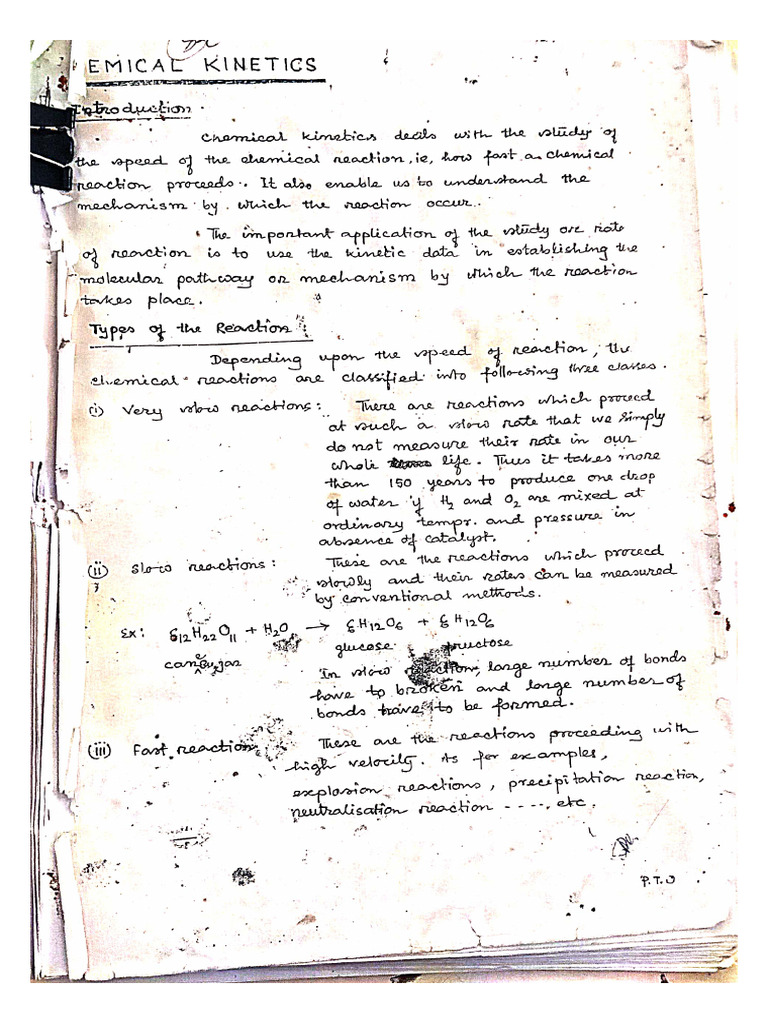 EMICAL KINETICS
Introduction
Chemical kinetics deals with the study of
the speed of the chemical reaction, ie, how fast a chemical
reaction proceeds. It also enable us to understand the
mechanism by which the reaction occur.
The important application of the study or rate
of reaction is to use the kinetic data in establishing the
molecular pathway or mechanism by which the reaction
takes place.
Types of the Reaction
Depending upon the speed of reaction, the
chemical reactions are classified into following three classes.
(i) Very slow reactions: There are reactions which proceed
at such a slow rate that we simply
do not measure their rate in our
whole life. Thus it takes more
than 150 years to produce one drop
of water if H₂ and O₂ are mixed at
ordinary tempr. and pressure in
absence of catalyst.
(ii) Slow reactions: These are the reactions which proceed
slowly and their rates can be measured
by conventional methods.
Ex: C₁₂H₂₂O₁₁ + H₂O → C₆H₁₂O₆ + C₆H₁₂O₆
cane sugar glucose fructose
In slow reaction, large number of bonds
have to broken and large number of
bonds have to be formed.
(iii) Fast reaction These are the reactions proceeding with
high velocity. As for examples,
explosion reactions, precipitation reaction,
neutralisation reaction ----- etc.
P.T.O